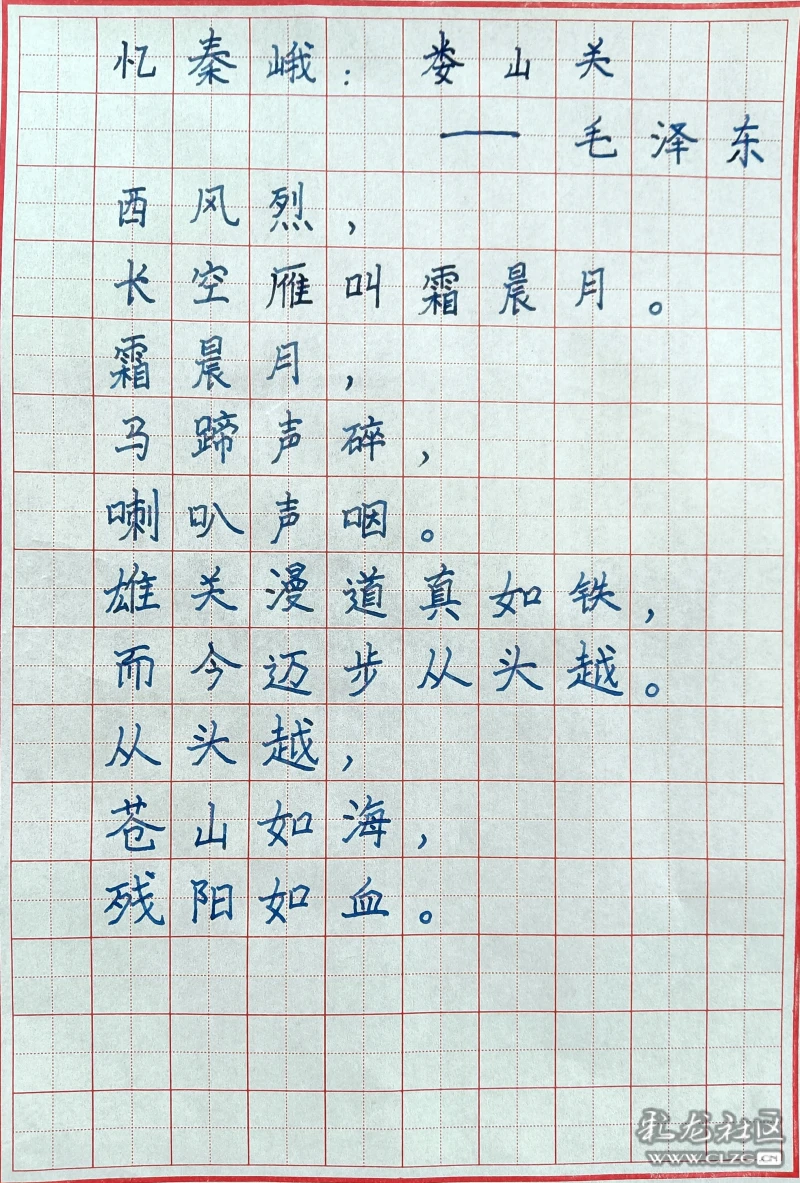 忆秦峨：娄山关
——毛泽东
西风烈，
长空雁叫霜晨月。
霜晨月，
马蹄声碎，
喇叭声咽。
雄关漫道真如铁，
而今迈步从头越。
从头越，
苍山如海，
残阳如血。
麒龙社区
www.CLZG.CN